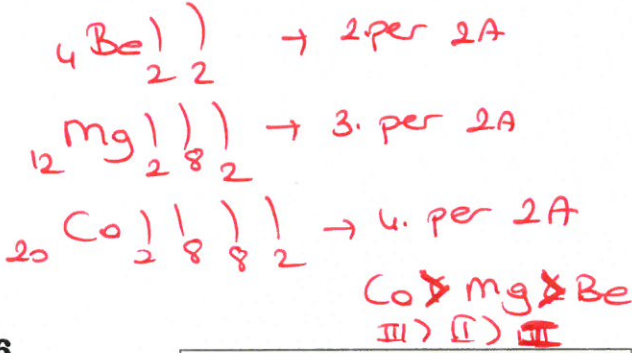 4Be ) ) → 2.per 2A
2 2
12Mg ) ) ) → 3. per 2A
2 8 2
20Ca ) ) ) ) → 4. per 2A
2 8 8 2
Ca > Mg > Be
III > II >
6